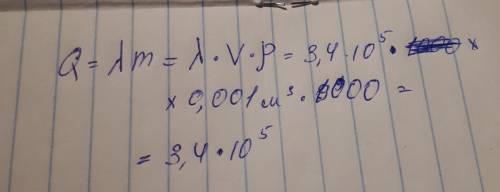 Q = λm = λ · V · ρ = 3,4 · 10⁵ · ×
× 0,001 м³ · 1000 =
= 3,4 · 10⁵